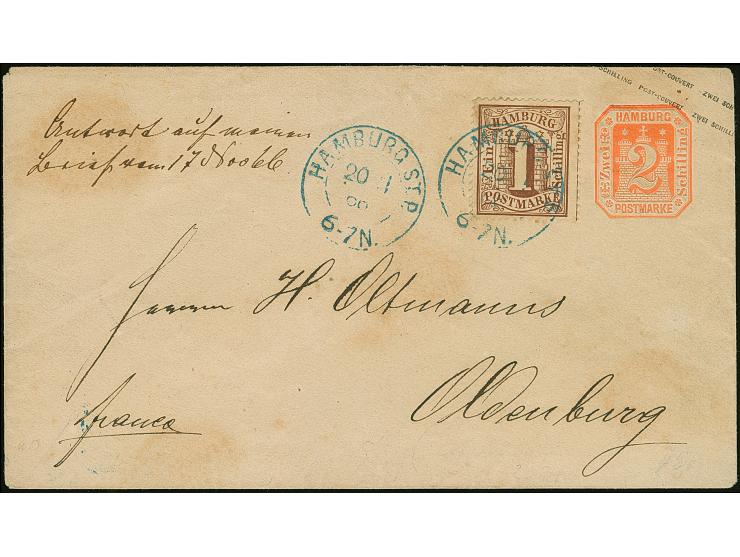 POST-COUVERT ZWEI SCHILLING
SCHILLING POST-COUVERT ZWEI SCHILL
Antwort auf meinen
Brief vom 17 Nov 66
HAMBURG ST.P.
20
6-7N.
HAMBURG
Ein
Schilling
1
POSTMARKE
6-7N.
HAMBURG
Zwei
Schilling
2
POSTMARKE
Herrn H. Oltmanns
Oldenburg
franco